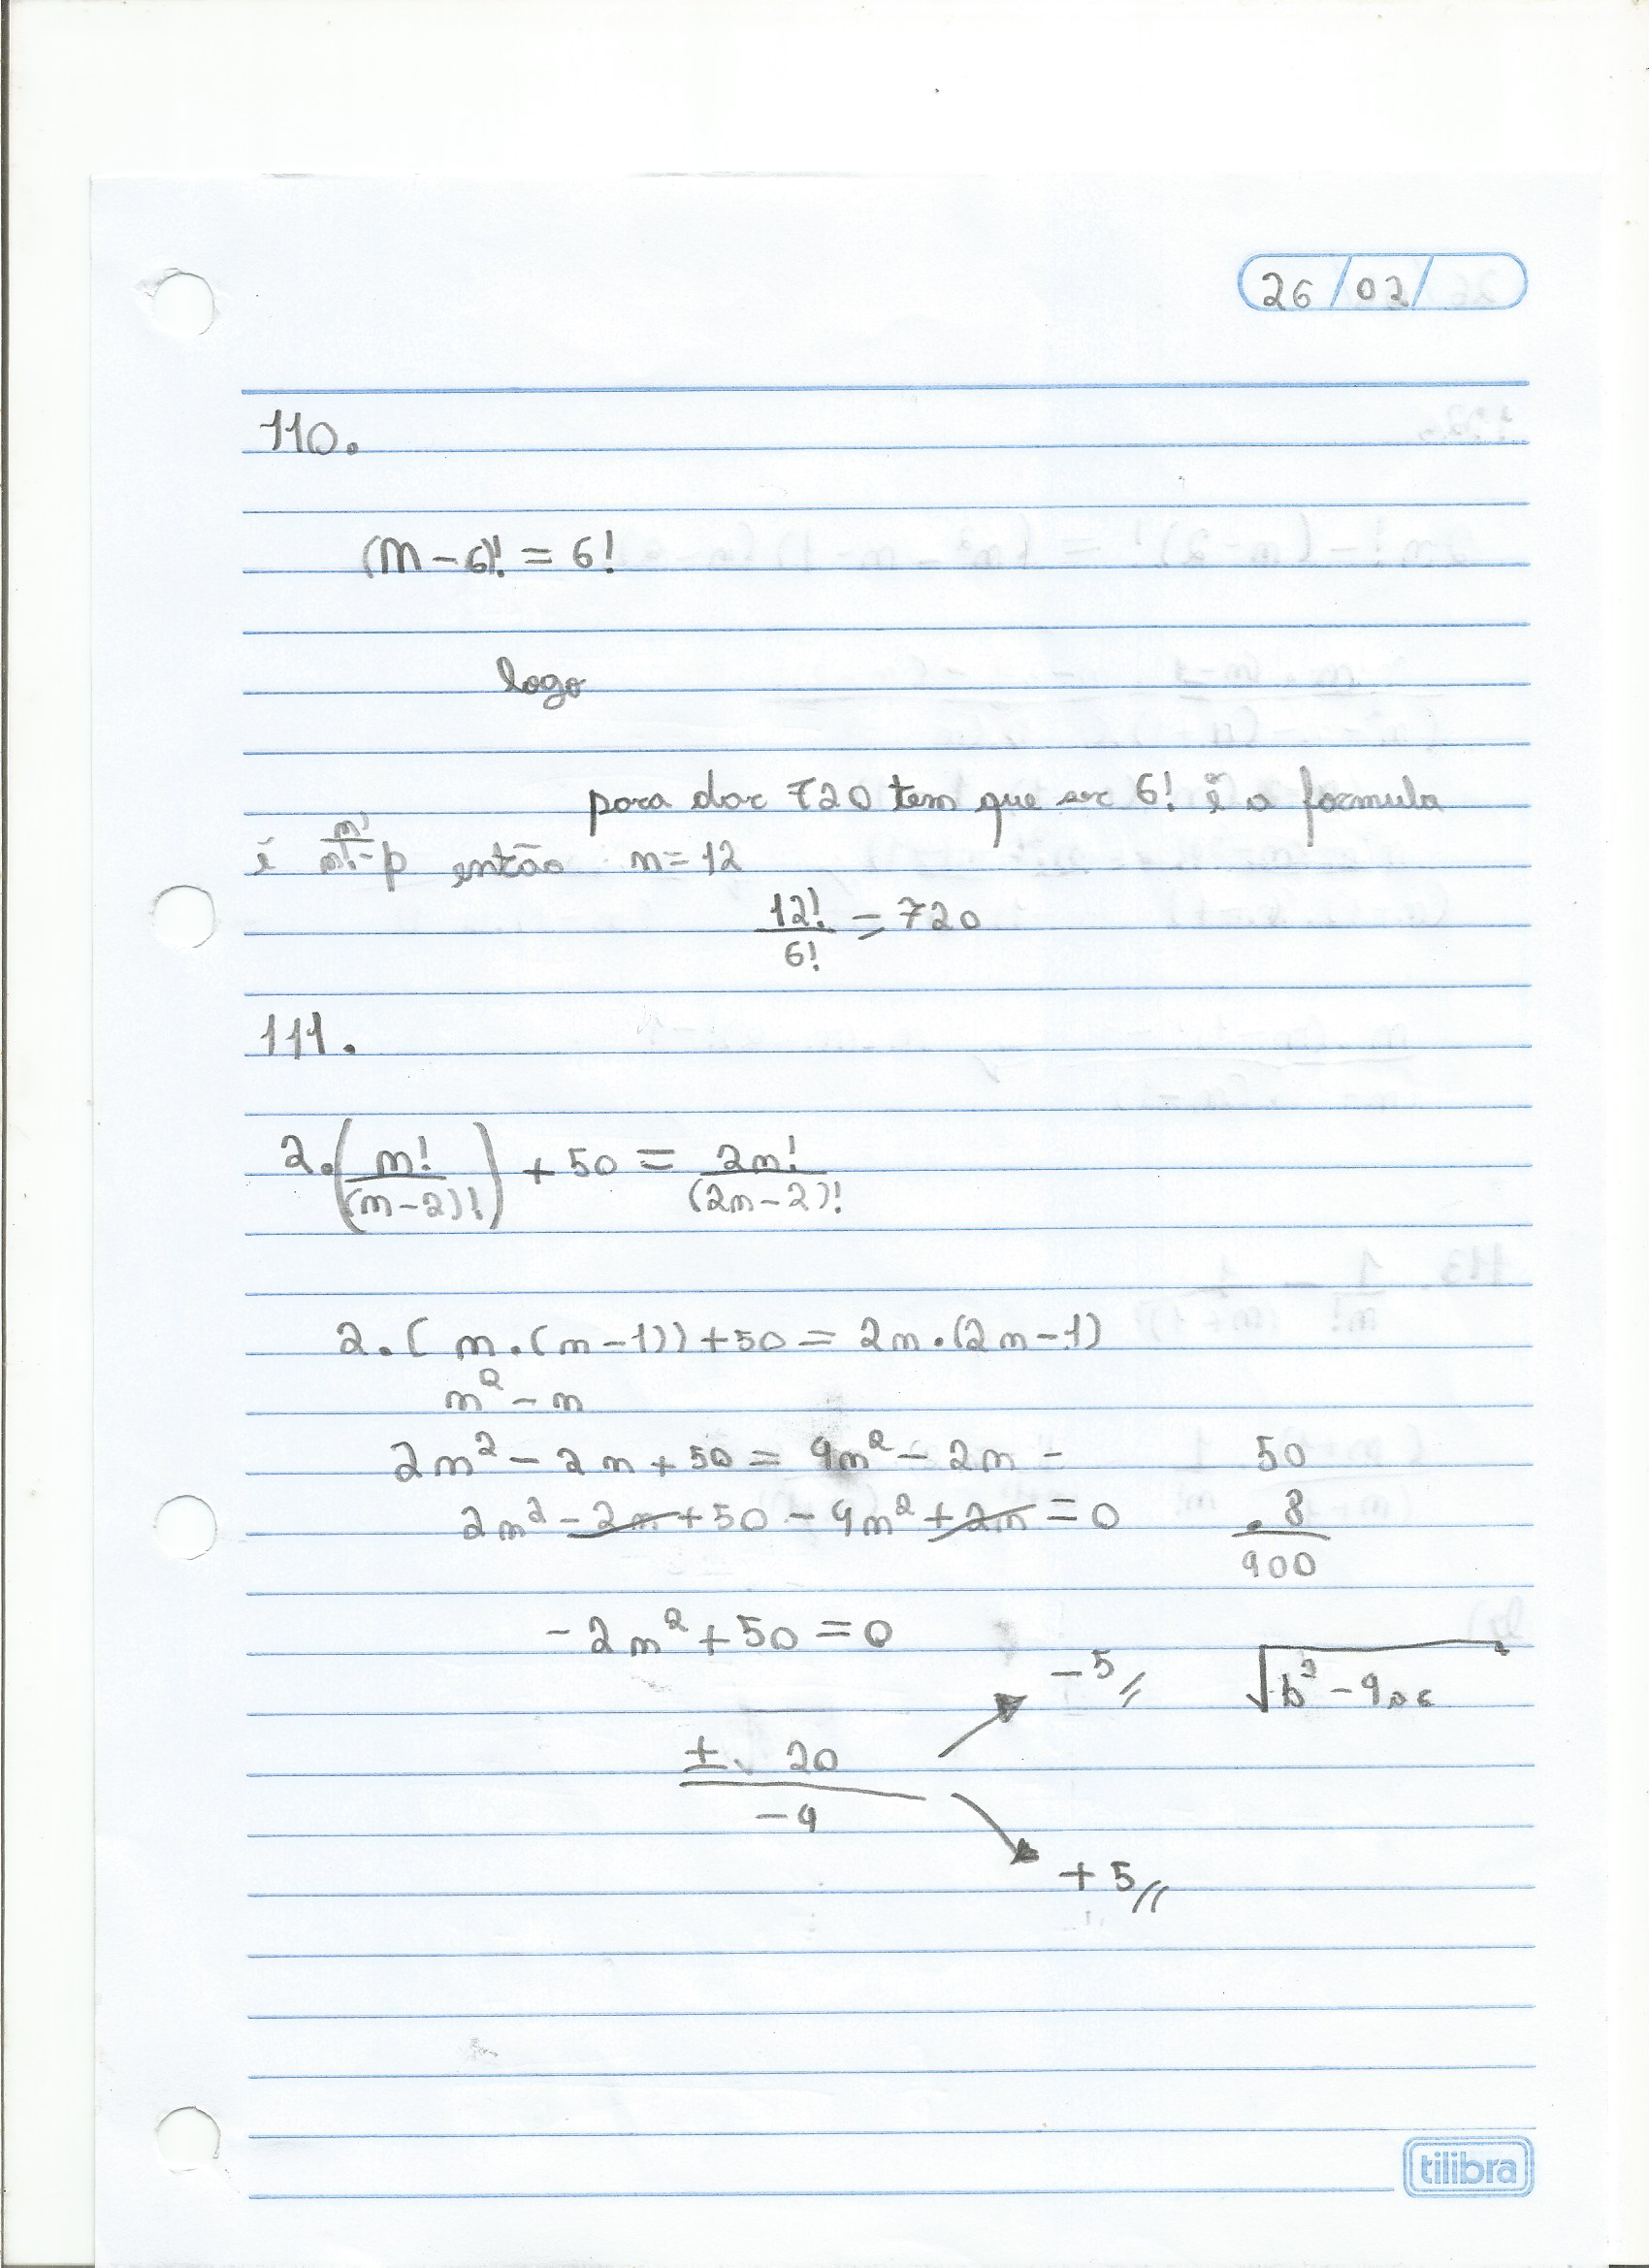 26/02/
110.
(m-6)! = 6!
logo
para dar 720 tem que ser 6! e a formula
é m!/m!-p então n=12
12!/6! = 720
111.
2.(m!/(m-2)!) + 50 = 2m!/(2m-2)!
2.(m.(m-1))+50 = 2m.(2m-1)
m² - m
2m² - 2m + 50 = 4m² - 2m - 50
2m² - 2m + 50 - 4m² + 2m = 0 . 8
400
-2m² + 50 = 0
-5 √b² - 4ac
± 20
-4
+5
tilibra